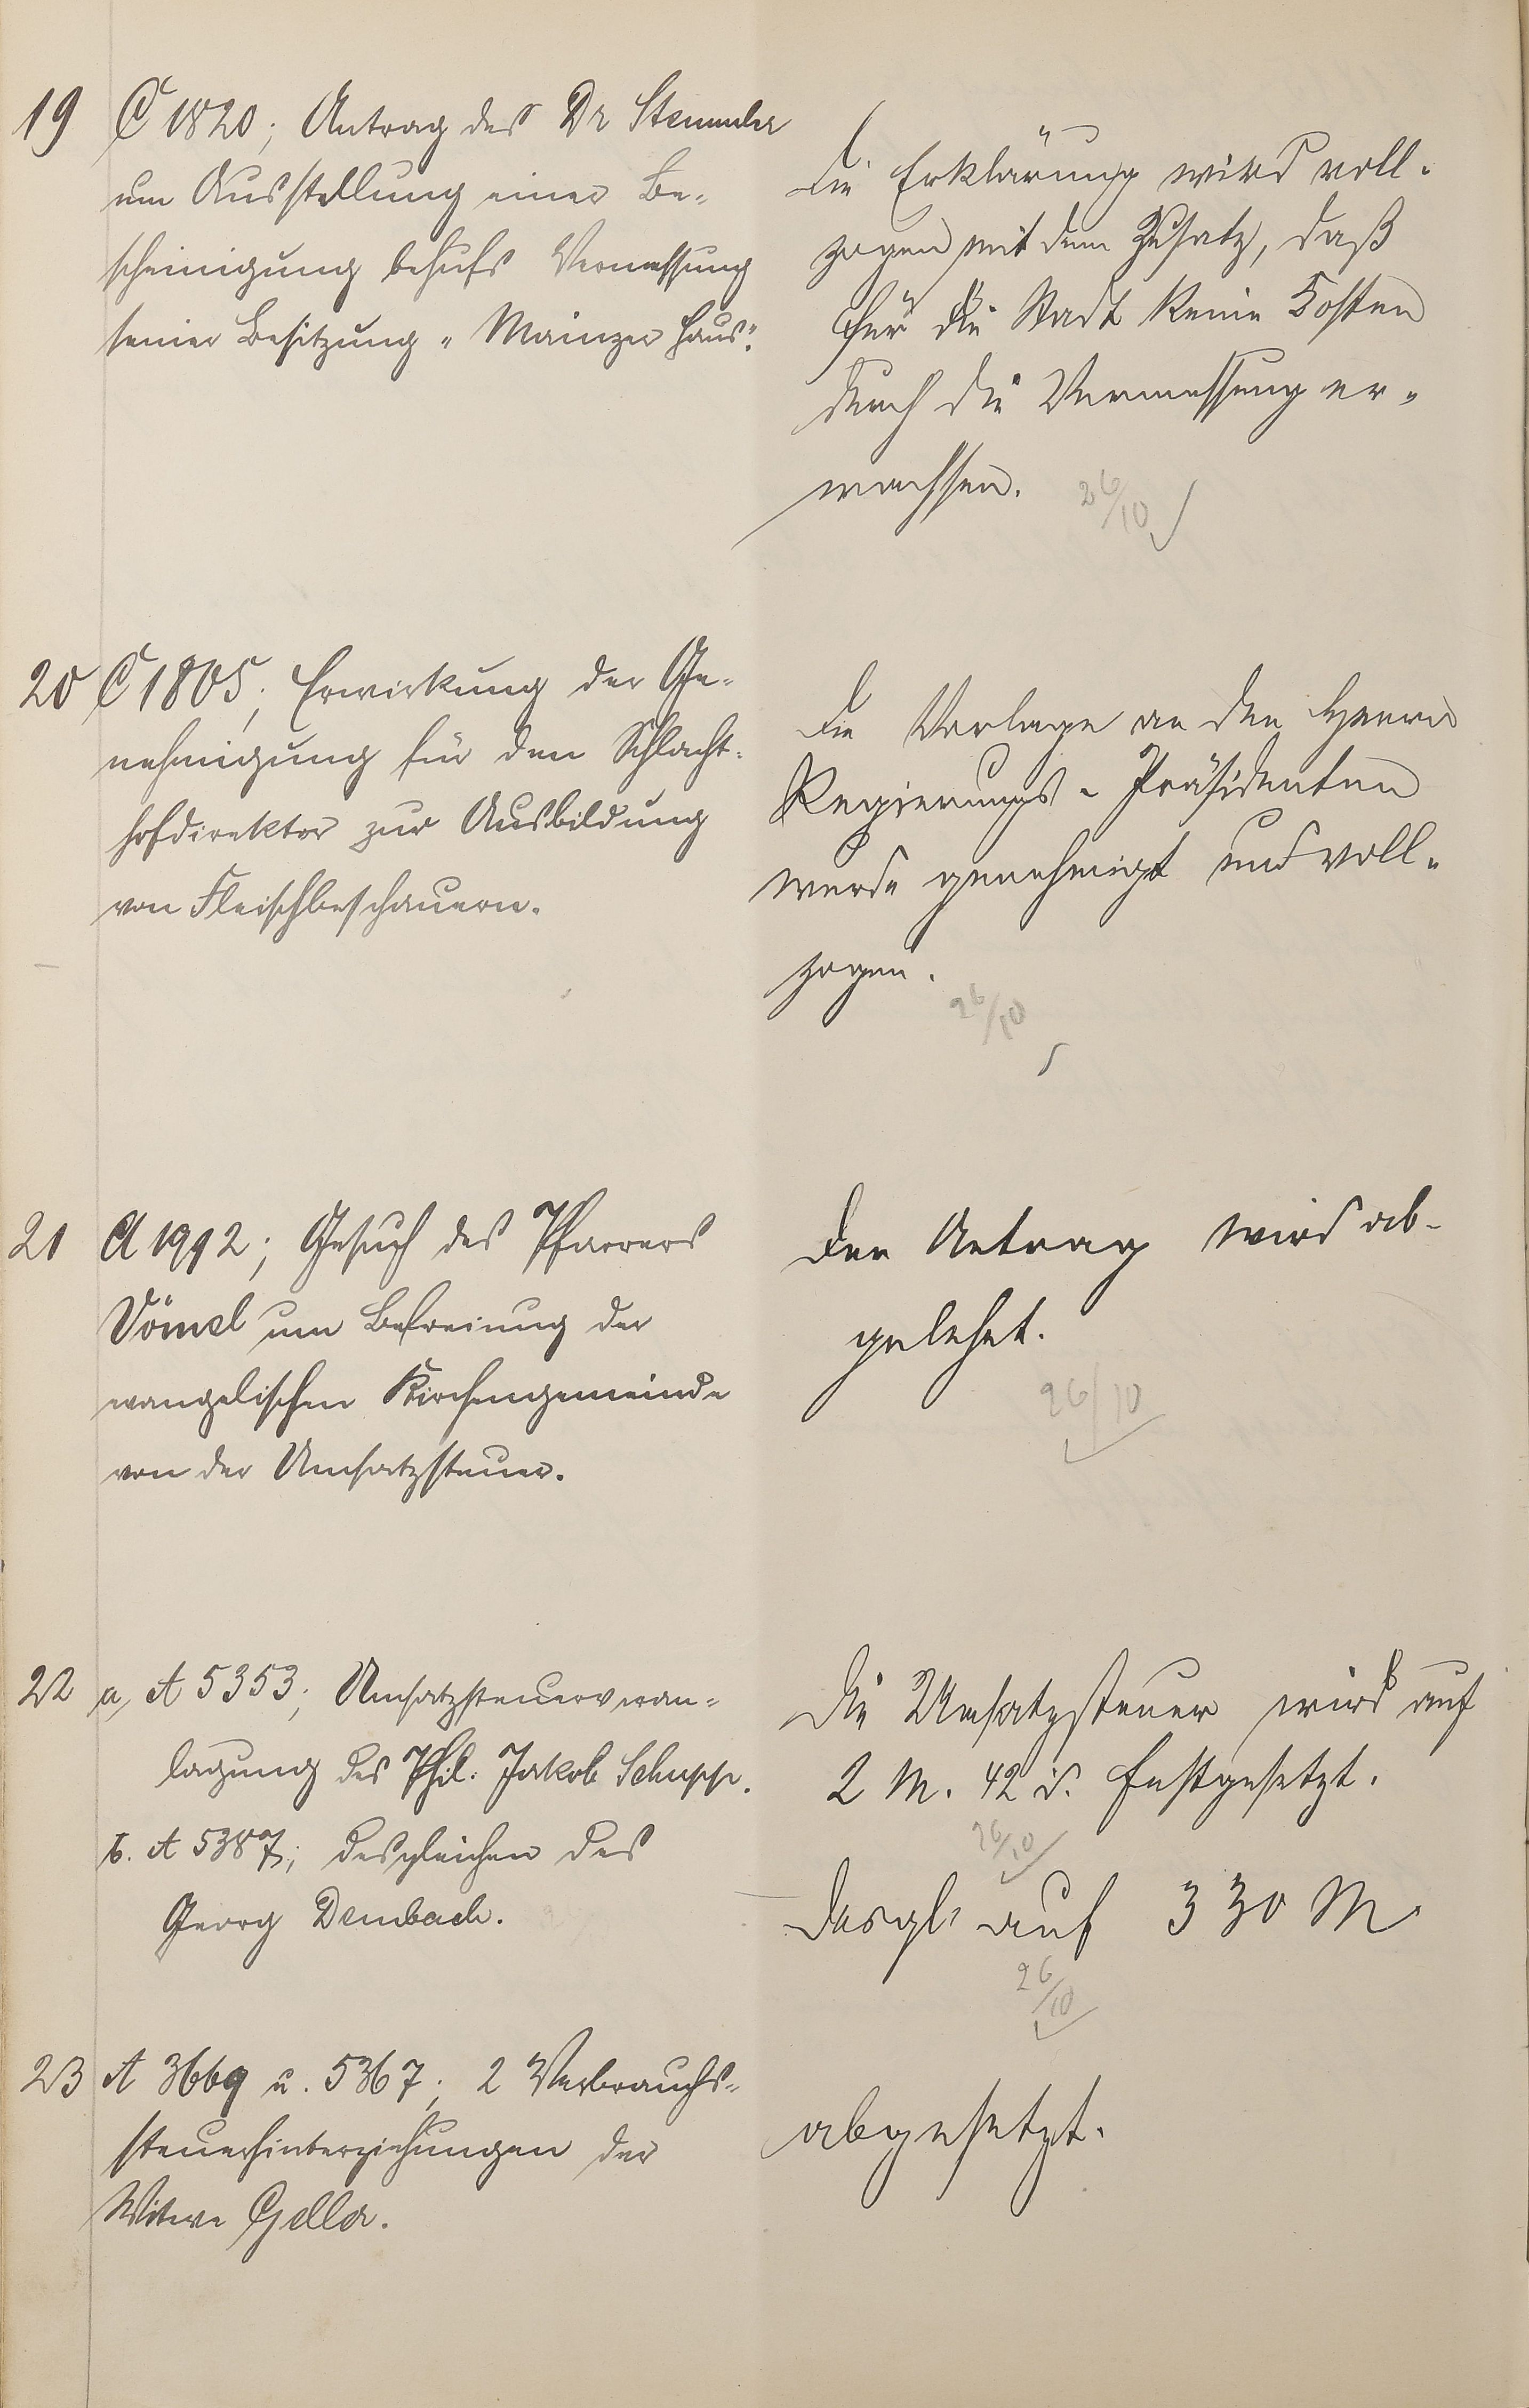 19 C 1820; Antrag des Dr Stemmler
um Ausstellung einer Be-
scheinigung behufs Vermessung
seiner Besitzung "Mainzer Haus".
Die Erklärung wird voll-
zogen mit dem Zusatz, daß
für die Stadt keine Kosten
durch die Vermessung er-
wachsen.
26/10
20 C 1805; Erwirkung der Ge-
nehmigung für den Schlacht-
hofdirektor zur Ausbildung
von Fleischbeschauern.
Die Vorlage an den Herrn
Regierungs-Präsidenten
wurde genehmigt und voll-
zogen.
26/10
21 A 1992; Gesuch des Pfarrers
Vömel um Befreiung der
evangelischen Kirchengemeinde
von der Umsatzsteuer.
Der Antrag wird ab-
gelehnt.
26/10
22 a, A 5353; Umsatzsteuerveran-
lagung des Phil. Jakob Schupp.
Die Umsatzsteuer wird auf
2 M. 42 d. festgesetzt.
26/10
b. A 5387; desgleichen des
Georg Dembach.
Desgl. auf 330 M.
26/10
23 A 3669 u. 5367; 2 Verbrauchs-
steuerhinterziehungen der
Witwe Geller.
abgesetzt.